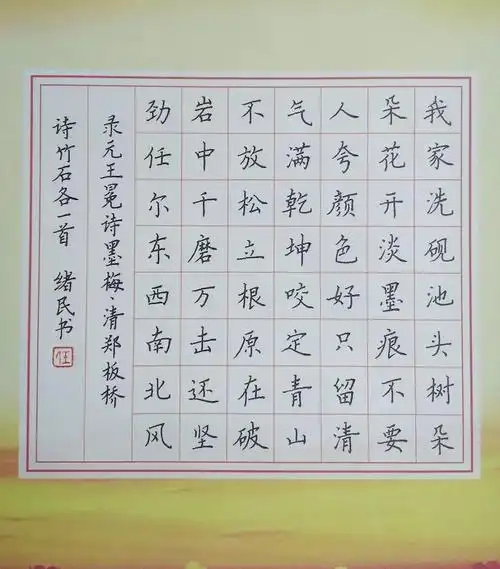 我家洗砚池头树朵
朵花开淡墨痕不要
人夸颜色好只留清
气满乾坤咬定青山
不放松立根原在破
岩中千磨万击还坚
劲任尔东西南北风
录元王冕诗墨梅·清郑板桥
诗竹石各一首 绪民书